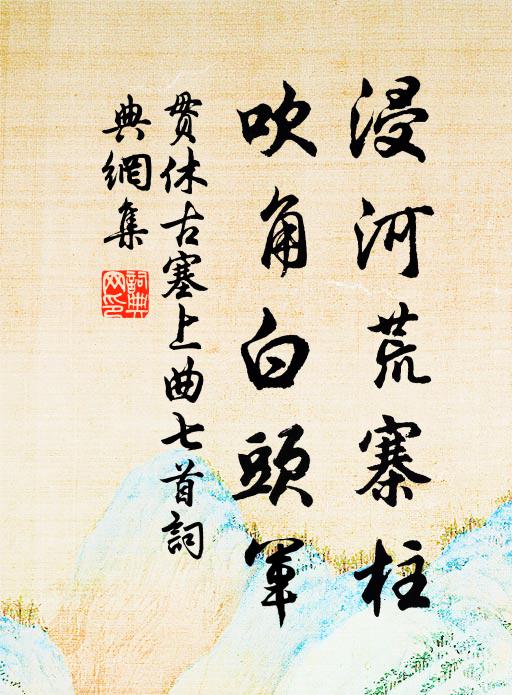 浸河荒寨柱
吹角白頭軍
貫休古塞上曲七首詞
典網集
詞典
网印